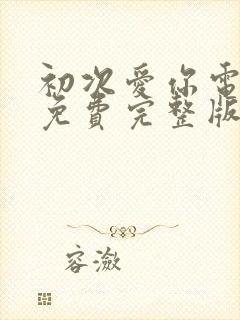 初次爱你電
免費完整版
容瀲